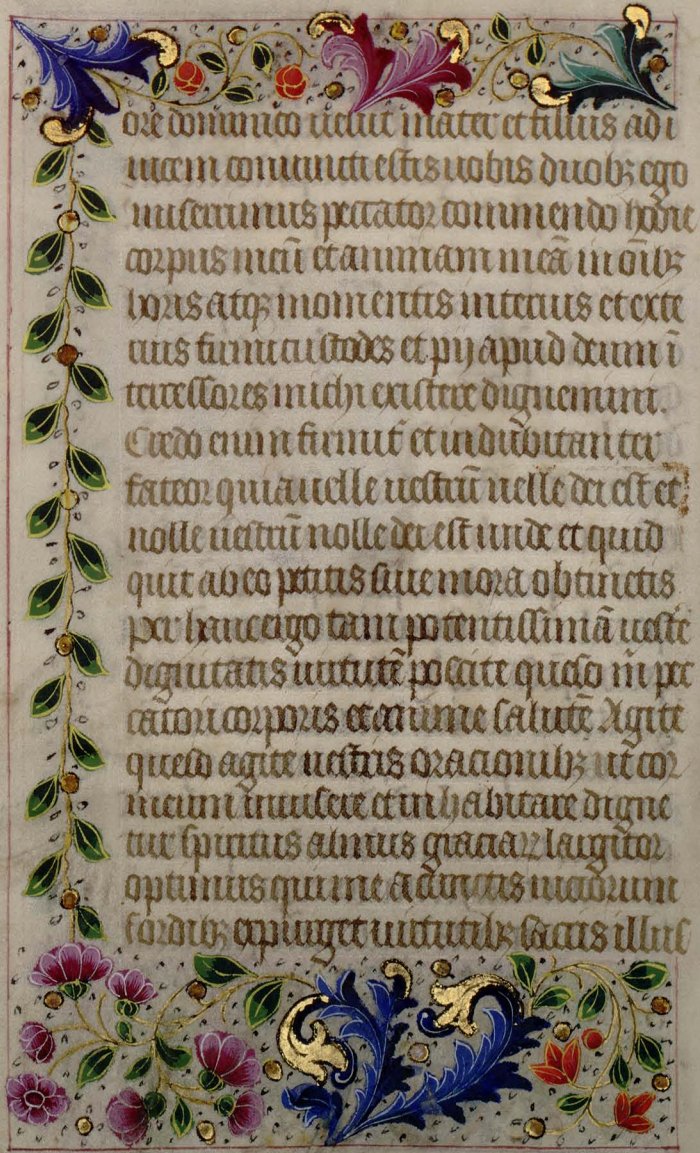 ore dominico uelut mater et filius ad i
uicem coniuncti estis uobis duobꝫ ego
miserrimus peccator commendo hodie
corpus meū et animam meā in oībꝫ
horis atqꝫ momentis interius et exte
rius firmi custodes et pij apud deum ī
tercessores michi existere dignemini.
Credo enim firmit̄ et indubitanter
fateor quia uelle uestrū uelle dei est et
nolle uestrū nolle dei est unde et quid
quit ab eo petitis siue mora obtinetis
per hanc ergo tam potentissimā uestre
dignitatis uirtutē poscite queso m̄ pec
catori corporis et anime salutē Agite
queso agite uestris oracionibꝫ ut cor
meum inuisere et inhabitare digne
tur spiritus almus graciaꝝ largitor
optimus qui me a cunctis uiciorum
sordibꝫ expurget uirtutibꝫ sacris illus